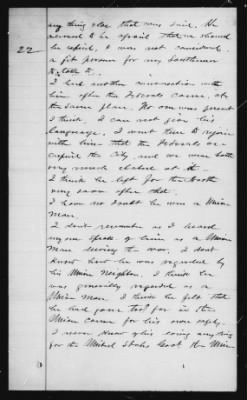 any thing else that was said. He
seemed to be afraid that we should
be copied, I was not considered
22
a fit person for any Southerner
to talk to.
I had another conversation with
him after the Federals came, at
the same place. No one was present
I think. I can not give his
language. I went there to rejoice
with him that the Federals oc-
cupied the city and we were both
very much elated at it.
I think he left for the North
very soon after that.
I have no doubt he was a Union
man.
I don't remember as I heard
any one speak of him as a Union
Man during the war. I don't
know how he was regarded by
his Union Neighbors. I think he
was generally regarded as a
Union Man. I think he felt that
he had gone too far in the
Union cause for his own safety.
I never knew of his doing any thing
for the United States Govt. or Union